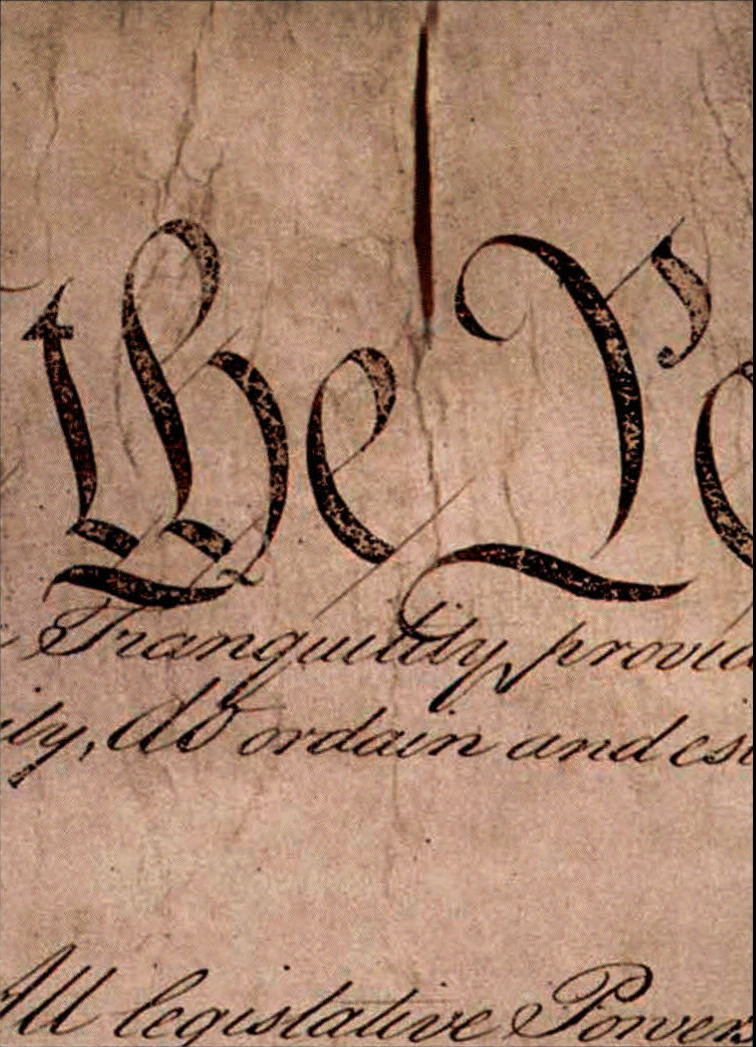 the Pe
Tranquility, provid
ity, do ordain and est
All legislative Powers